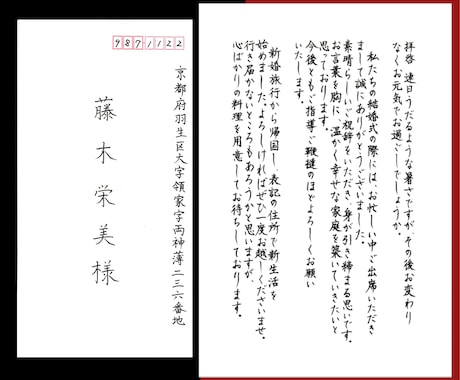 9871122
京都府羽生区大字領家字両神薄二三六番地
藤木栄美様
拝啓 連日うだるような暑さですが、その後お変わり
なくお元気でお過ごしでしょうか。
私たちの結婚式の際には、お忙しい中ご出席いただき
まして誠にありがとうございました。
素晴らしいご祝辞をいただき、身が引き締まる思いです。
お言葉を胸に、温かく幸せな家庭を築いていきたいと
思っております。
今後ともご指導ご鞭撻のほどよろしくお願い
いたします。
新婚旅行から帰国し、表記の住所で新生活を
始めました。よろしければぜひ一度お越しくださいませ。
行き届かないところもあろうかと思いますが、
心ばかりの料理を用意してお待ちしております。